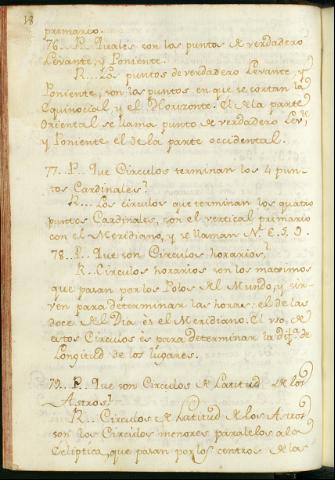 18
primario.
76. P. Quales son los puntos de verdadero
Levante, y Poniente.
R... Los puntos de verdadero Levante, y
Poniente, son los puntos en que se cortan la
Equinoccial, y el Horizonte. El de la parte
Oriental se llama punto de verdadero Lev.te
y Poniente el de la parte occidental.
77. P. Que Circulos terminan los 4 pun-
tos Cardinales?
R... Los circulos que terminan los quatro
puntos Cardinales, son el vertical primario
con el Meridiano, y se llaman N. E. S. O.
78. P.. Que son Circulos horarios?
R.. Circulos horarios son los maximos
que pasan por los Polos del Mundo, y sir-
ven para determinar las horas, el de las
doce del Dia es el Meridiano. El uso, de
estos Circulos es para determinar la dif.a de
Longitud de los lugares.
79. P.. Que son Circulos de Latitud de los
Astros?
R... Circulos de Latitud de los Astros
son los Circulos menores paralelos a la
Ecliptica, que pasan por los centros de los